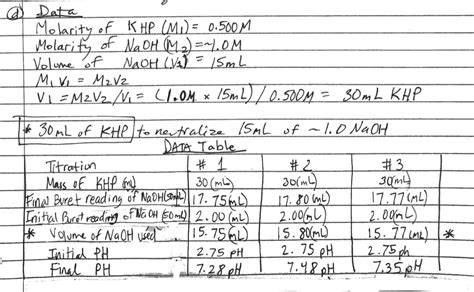 d) Data
Molarity of KHP (M1) = 0.500M
Molarity of NaOH (M2) = ~1.0M
Volume of NaOH (V2) = 15mL
M1V1 = M2V2
V1 = M2V2/V1 = (1.0M × 15mL) / 0.500M = 30mL KHP
* 30mL of KHP to neutralize 15mL of ~1.0 NaOH
DATA Table
Titration #1 #2 #3
Mass of KHP (mL) 30(mL) 30(mL) 30(mL)
Final Buret reading of NaOH(50mL) 17.75(mL) 17.80(mL) 17.77(mL)
Initial Buret reading of NaOH (50mL) 2.00 (mL) 2.00(mL) 2.00(mL)
* Volume of NaOH used 15.75(mL) 15.80(mL) 15.77(mL) *
Initial PH 2.75 pH 2.75 pH 2.75 ph
Final PH 7.28 pH 7.48 pH 7.35 pH